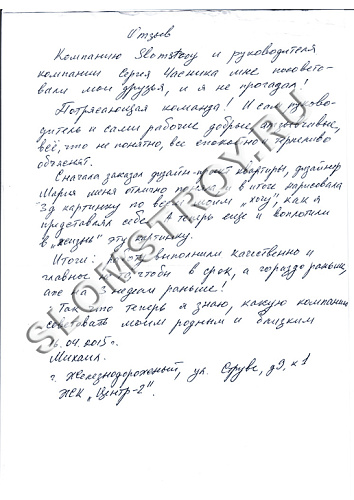 Отзыв
Компанию Slomstroy и руководителя
компании Сергея Часника мне посовето-
вали мои друзья, и я не прогадал!
Потрясающая команда! И сам руково-
дитель и сами рабочие добрые,
всё, что не понятно, все спокойно и терпеливо
объяснят.
Сначала заказал дизайн-проект квартиры, дизайнер
Мария меня отлично поняла и в итоге нарисовала
3д картинку по всем моим "хочу", как я
представлял себе. А теперь еще и воплотили
в "жизнь" эту картинку.
Итоги: выполнили качественно и
главное не чтобы в срок, а гораздо раньше,
аж на 3 недели раньше!
Так что теперь я знаю, какую компанию
советовать моим родным и близким
16.04.2015г.
Михаил.
г. Железнодорожный, ул. Струве, д9, к1
ЖК "Центр-2".
SLOMSTROY.RU